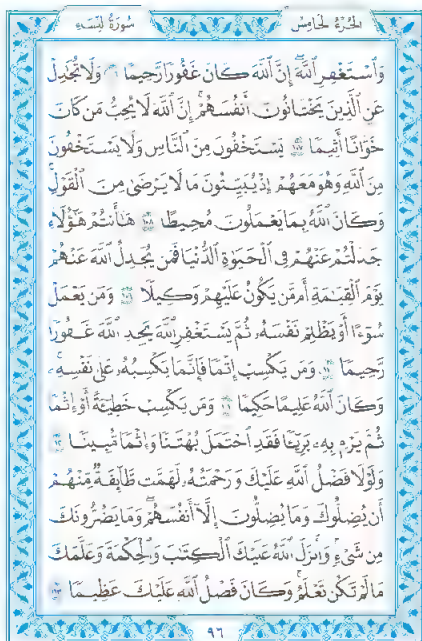 الجزء الخامس
سورة النساء
وَٱسْتَغْفِرِ ٱللَّهَ إِنَّ ٱللَّهَ كَانَ غَفُورًا رَّحِيمًا ١٠٦ وَلَا تُجَٰدِلْ
عَنِ ٱلَّذِينَ يَخْتَانُونَ أَنفُسَهُمْ إِنَّ ٱللَّهَ لَا يُحِبُّ مَن كَانَ
خَوَّانًا أَثِيمًا ١٠٧ يَسْتَخْفُونَ مِنَ ٱلنَّاسِ وَلَا يَسْتَخْفُونَ
مِنَ ٱللَّهِ وَهُوَ مَعَهُمْ إِذْ يُبَيِّتُونَ مَا لَا يَرْضَىٰ مِنَ ٱلْقَوْلِ
وَكَانَ ٱللَّهُ بِمَا يَعْمَلُونَ مُحِيطًا ١٠٨ هَٰٓأَنتُمْ هَٰٓؤُلَآءِ
جَٰدَلْتُمْ عَنْهُمْ فِى ٱلْحَيَوٰةِ ٱلدُّنْيَا فَمَن يُجَٰدِلُ ٱللَّهَ عَنْهُمْ
يَوْمَ ٱلْقِيَٰمَةِ أَم مَّن يَكُونُ عَلَيْهِمْ وَكِيلًا ١٠٩ وَمَن يَعْمَلْ
سُوٓءًا أَوْ يَظْلِمْ نَفْسَهُۥ ثُمَّ يَسْتَغْفِرِ ٱللَّهَ يَجِدِ ٱللَّهَ غَفُورًا
رَّحِيمًا ١١٠ وَمَن يَكْسِبْ إِثْمًا فَإِنَّمَا يَكْسِبُهُۥ عَلَىٰ نَفْسِهِۦ
وَكَانَ ٱللَّهُ عَلِيمًا حَكِيمًا ١١١ وَمَن يَكْسِبْ خَطِيٓـَٔةً أَوْ إِثْمًا
ثُمَّ يَرْمِ بِهِۦ بَرِيٓـًٔا فَقَدِ ٱحْتَمَلَ بُهْتَٰنًا وَإِثْمًا مُّبِينًا ١١٢
وَلَوْلَا فَضْلُ ٱللَّهِ عَلَيْكَ وَرَحْمَتُهُۥ لَهَمَّت طَّآئِفَةٌ مِّنْهُمْ
أَن يُضِلُّوكَ وَمَا يُضِلُّونَ إِلَّآ أَنفُسَهُمْ وَمَا يَضُرُّونَكَ
مِن شَىْءٍ وَأَنزَلَ ٱللَّهُ عَلَيْكَ ٱلْكِتَٰبَ وَٱلْحِكْمَةَ وَعَلَّمَكَ
مَا لَمْ تَكُن تَعْلَمُ وَكَانَ فَضْلُ ٱللَّهِ عَلَيْكَ عَظِيمًا ١١٣
٩٦